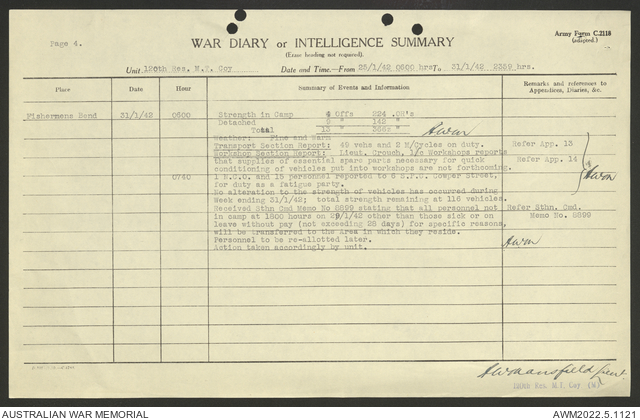 Page 4.
WAR DIARY or INTELLIGENCE SUMMARY
(Erase heading not required).
Army Form C.2118
(adapted.)
Unit. 120th Res. M.T. Coy Date and Time.—From 25/1/42 0600 hrs To 31/1/42 2359 hrs.
Place Date Hour Summary of Events and Information Remarks and references to Appendices, Diaries, &c.
Fishermens Bend 31/1/42 0600 Strength in Camp 4 Offs 224 OR's
Detached 142 "
Total 13 " 366 "
Weather: Fine and Warm
Transport Section Report: 46 vehs and 2 M/Cycles on duty. Refer App. 13
Workshop Section Report: Lieut. Crouch, i/c Workshops reports Refer App. 14
that supplies of essential spare parts necessary for quick
conditioning of vehicles put into workshops are not forthcoming.
0740 1 N.C.O. and 15 personnel reported to Cowper Street,
for duty as a fatigue party.
No alteration to the strength of vehicles has occurred during
Week ending 31/1/42; total strength remaining at 116 vehicles.
Received Sthn Cmd Memo No 5899 stating that all personnel not Refer Sthn. Cmd.
in camp at 1800 hours on /1/42 other than those sick or on Memo No. 5899
leave without pay (not exceeding 28 days) for specific reasons,
will be transferred to the Area in which they reside.
Personnel to be re-allotted later.
Action taken accordingly by unit.
AWMansfield Lieut
120th Res. M.T. Coy (M)
AUSTRALIAN WAR MEMORIAL AWM2022.5.1121